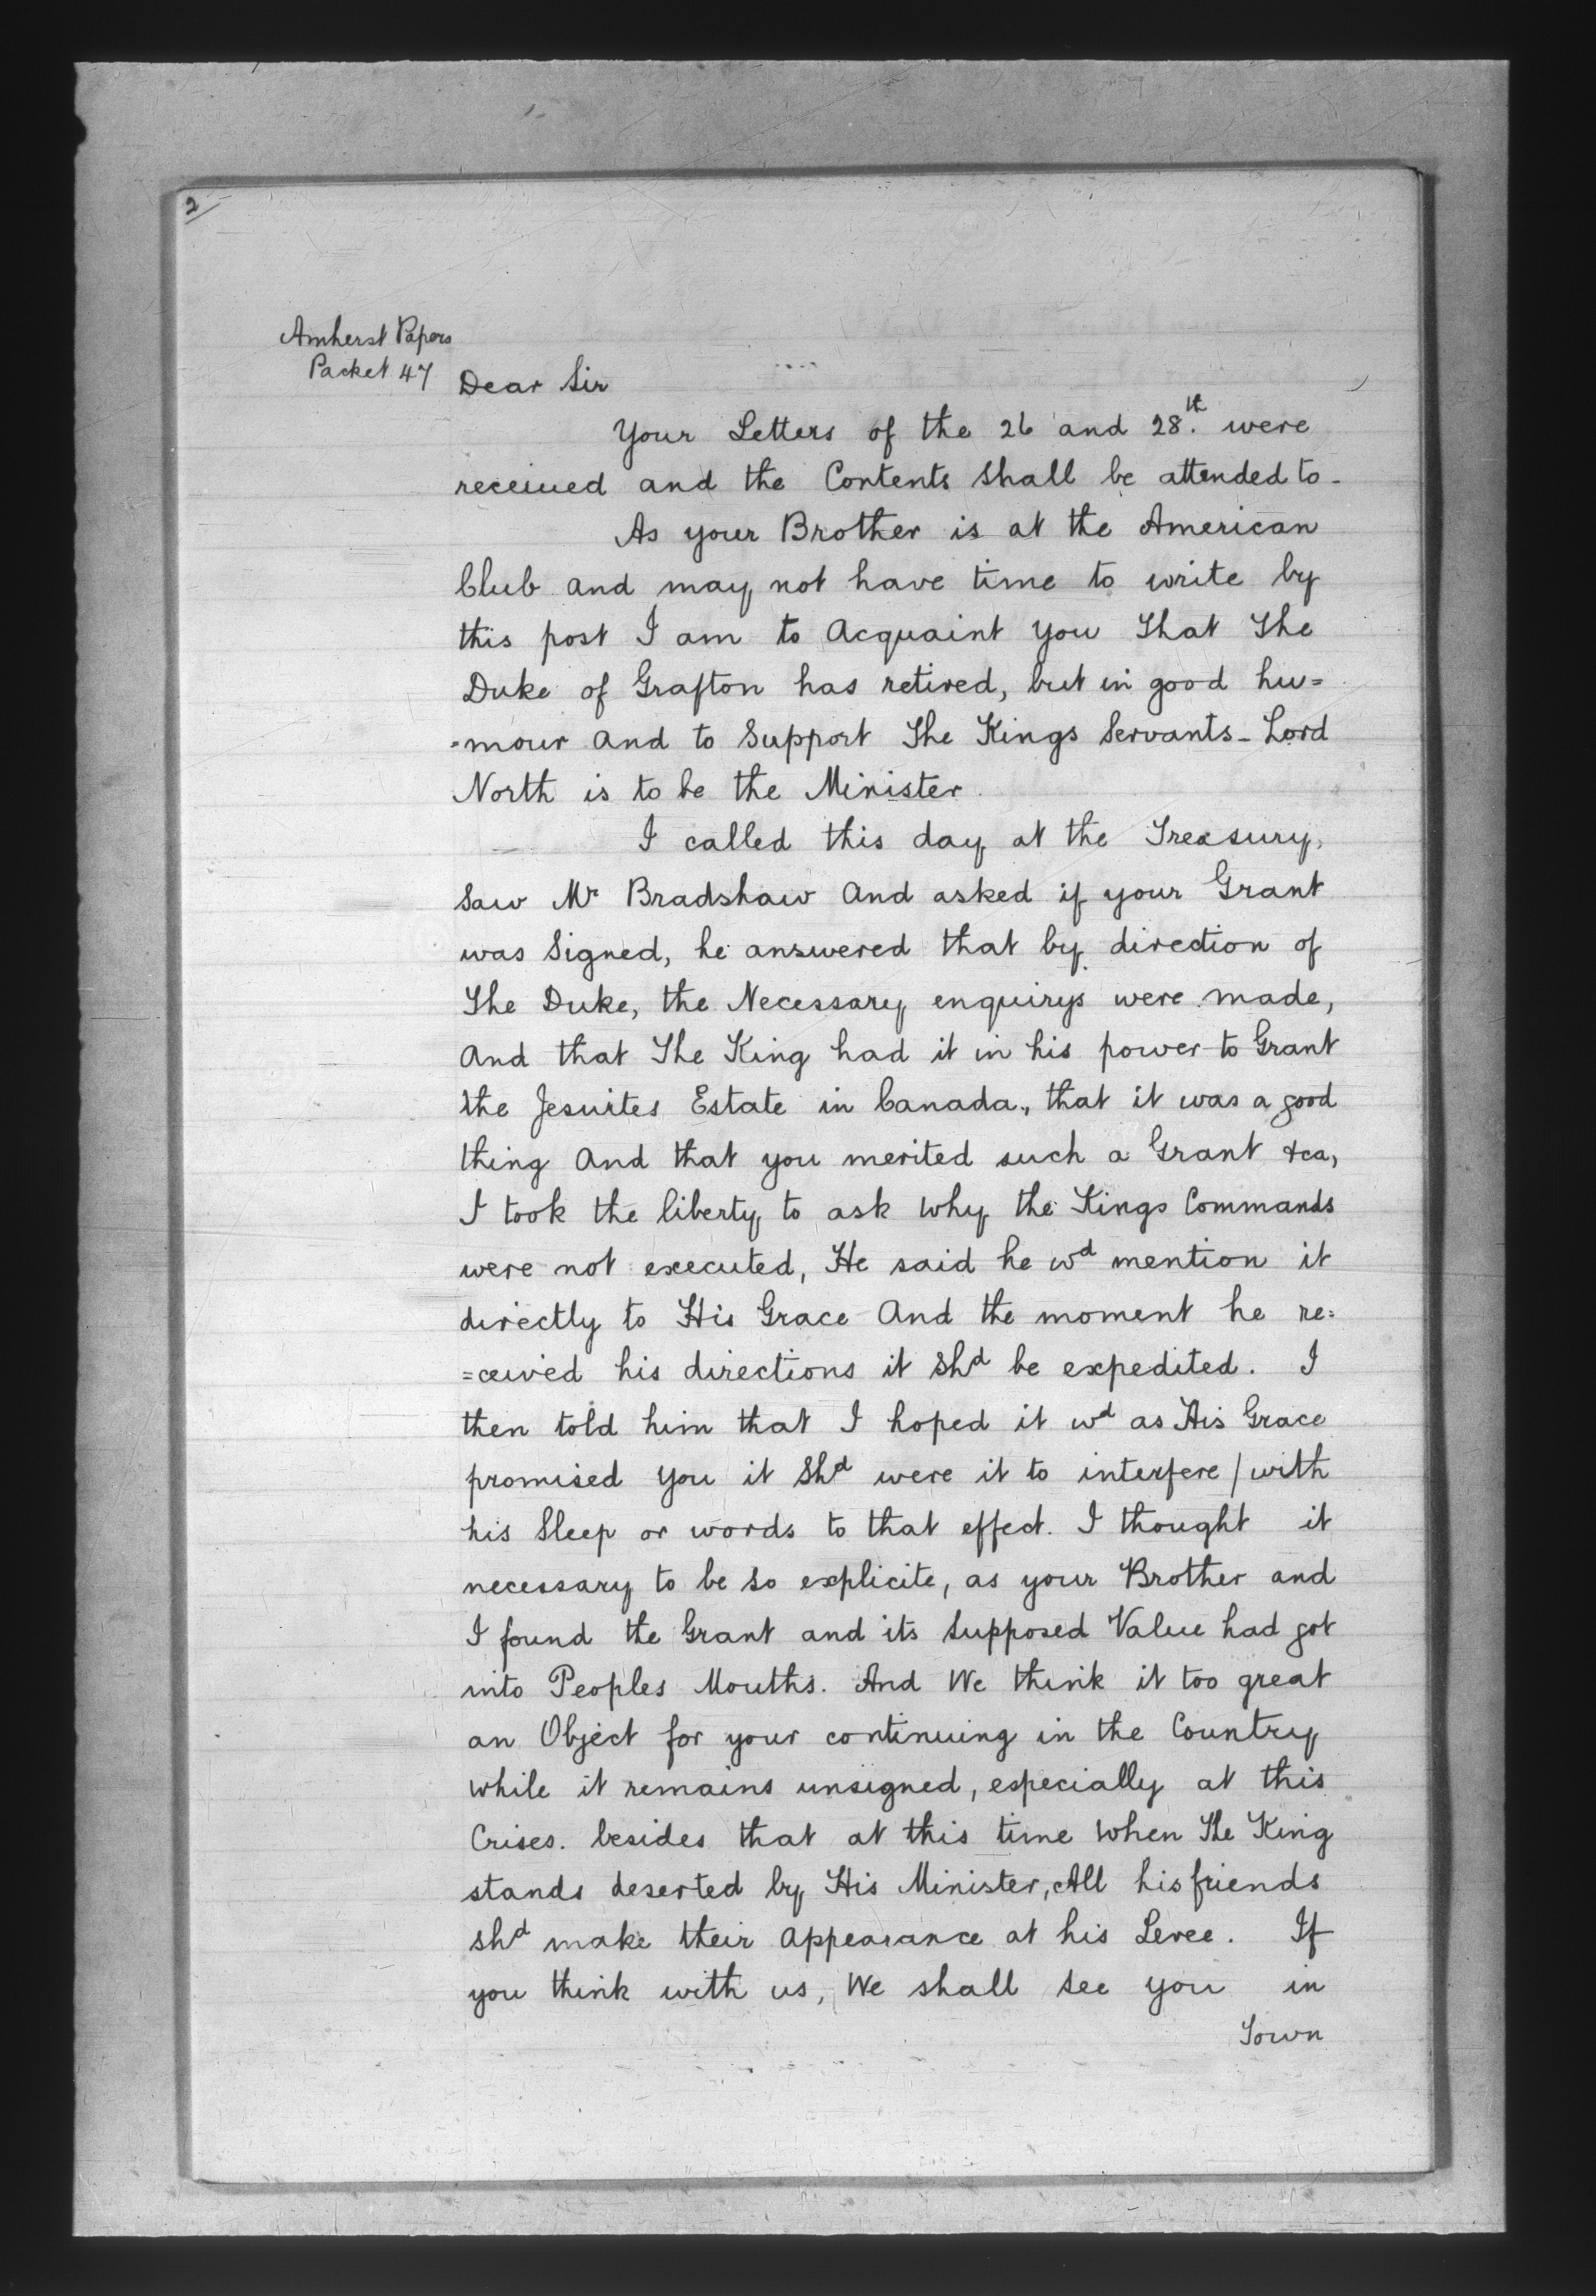 2
Amherst Papers
Packet 47
Dear Sir
Your Letters of the 26 and 28.th were
received and the Contents Shall be attended to -
As your Brother is at the American
Club and may not have time to write by
this post I am to Acquaint you That The
Duke of Grafton has retired, but in good hu=
=mour and to Support The Kings Servants - Lord
North is to be the Minister.
I called this day at the Treasury,
Saw Mr Bradshaw And asked if your Grant
was Signed, he answered that by direction of
The Duke, the Necessary enquirys were made,
And that The King had it in his power to Grant
the Jesuites Estate in Canada, that it was a good
thing And that you merited such a Grant &ca,
I took the liberty to ask Why the Kings Commands
were not executed, He said he wd mention it
directly to His Grace And the moment he re=
=ceived his directions it Shd be expedited. I
then told him that I hoped it wd as His Grace
promised You it Shd were it to interfere / with
his Sleep or words to that effect. I thought it
necessary to be So explicite, as your Brother and
I found the Grant and its Supposed Value had got
into Peoples Mouths. And We think it too great
an Object for your continuing in the Country
While it remains unsigned, especially at this
Crises. besides that at this time When The King
stands deserted by His Minister, All his friends
shd make their Appearance at his Levee. If
you think with us, We shall See you in
Town